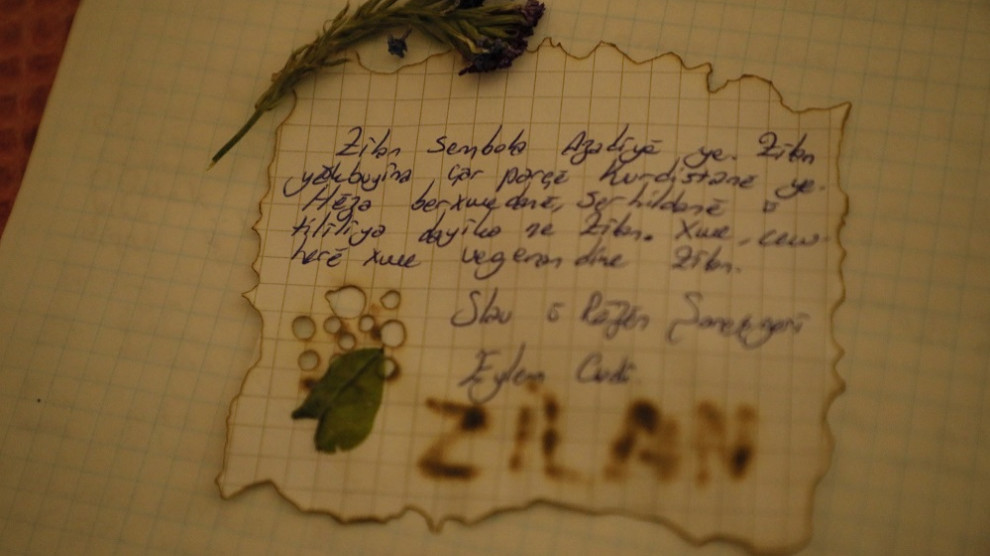 Zilan Sembola Azadiyê ye. Zilan
yêkbuyina çar parçê Kurdistanê ye.
Hêza berxwedanê, Serhildanê û
dayika ne Zilan. Xwe, cew-
herê xwe vegeran dine Zilan.
Slav û Rêzên Şoreşgerî
Eylem Cudi
ZİLAN